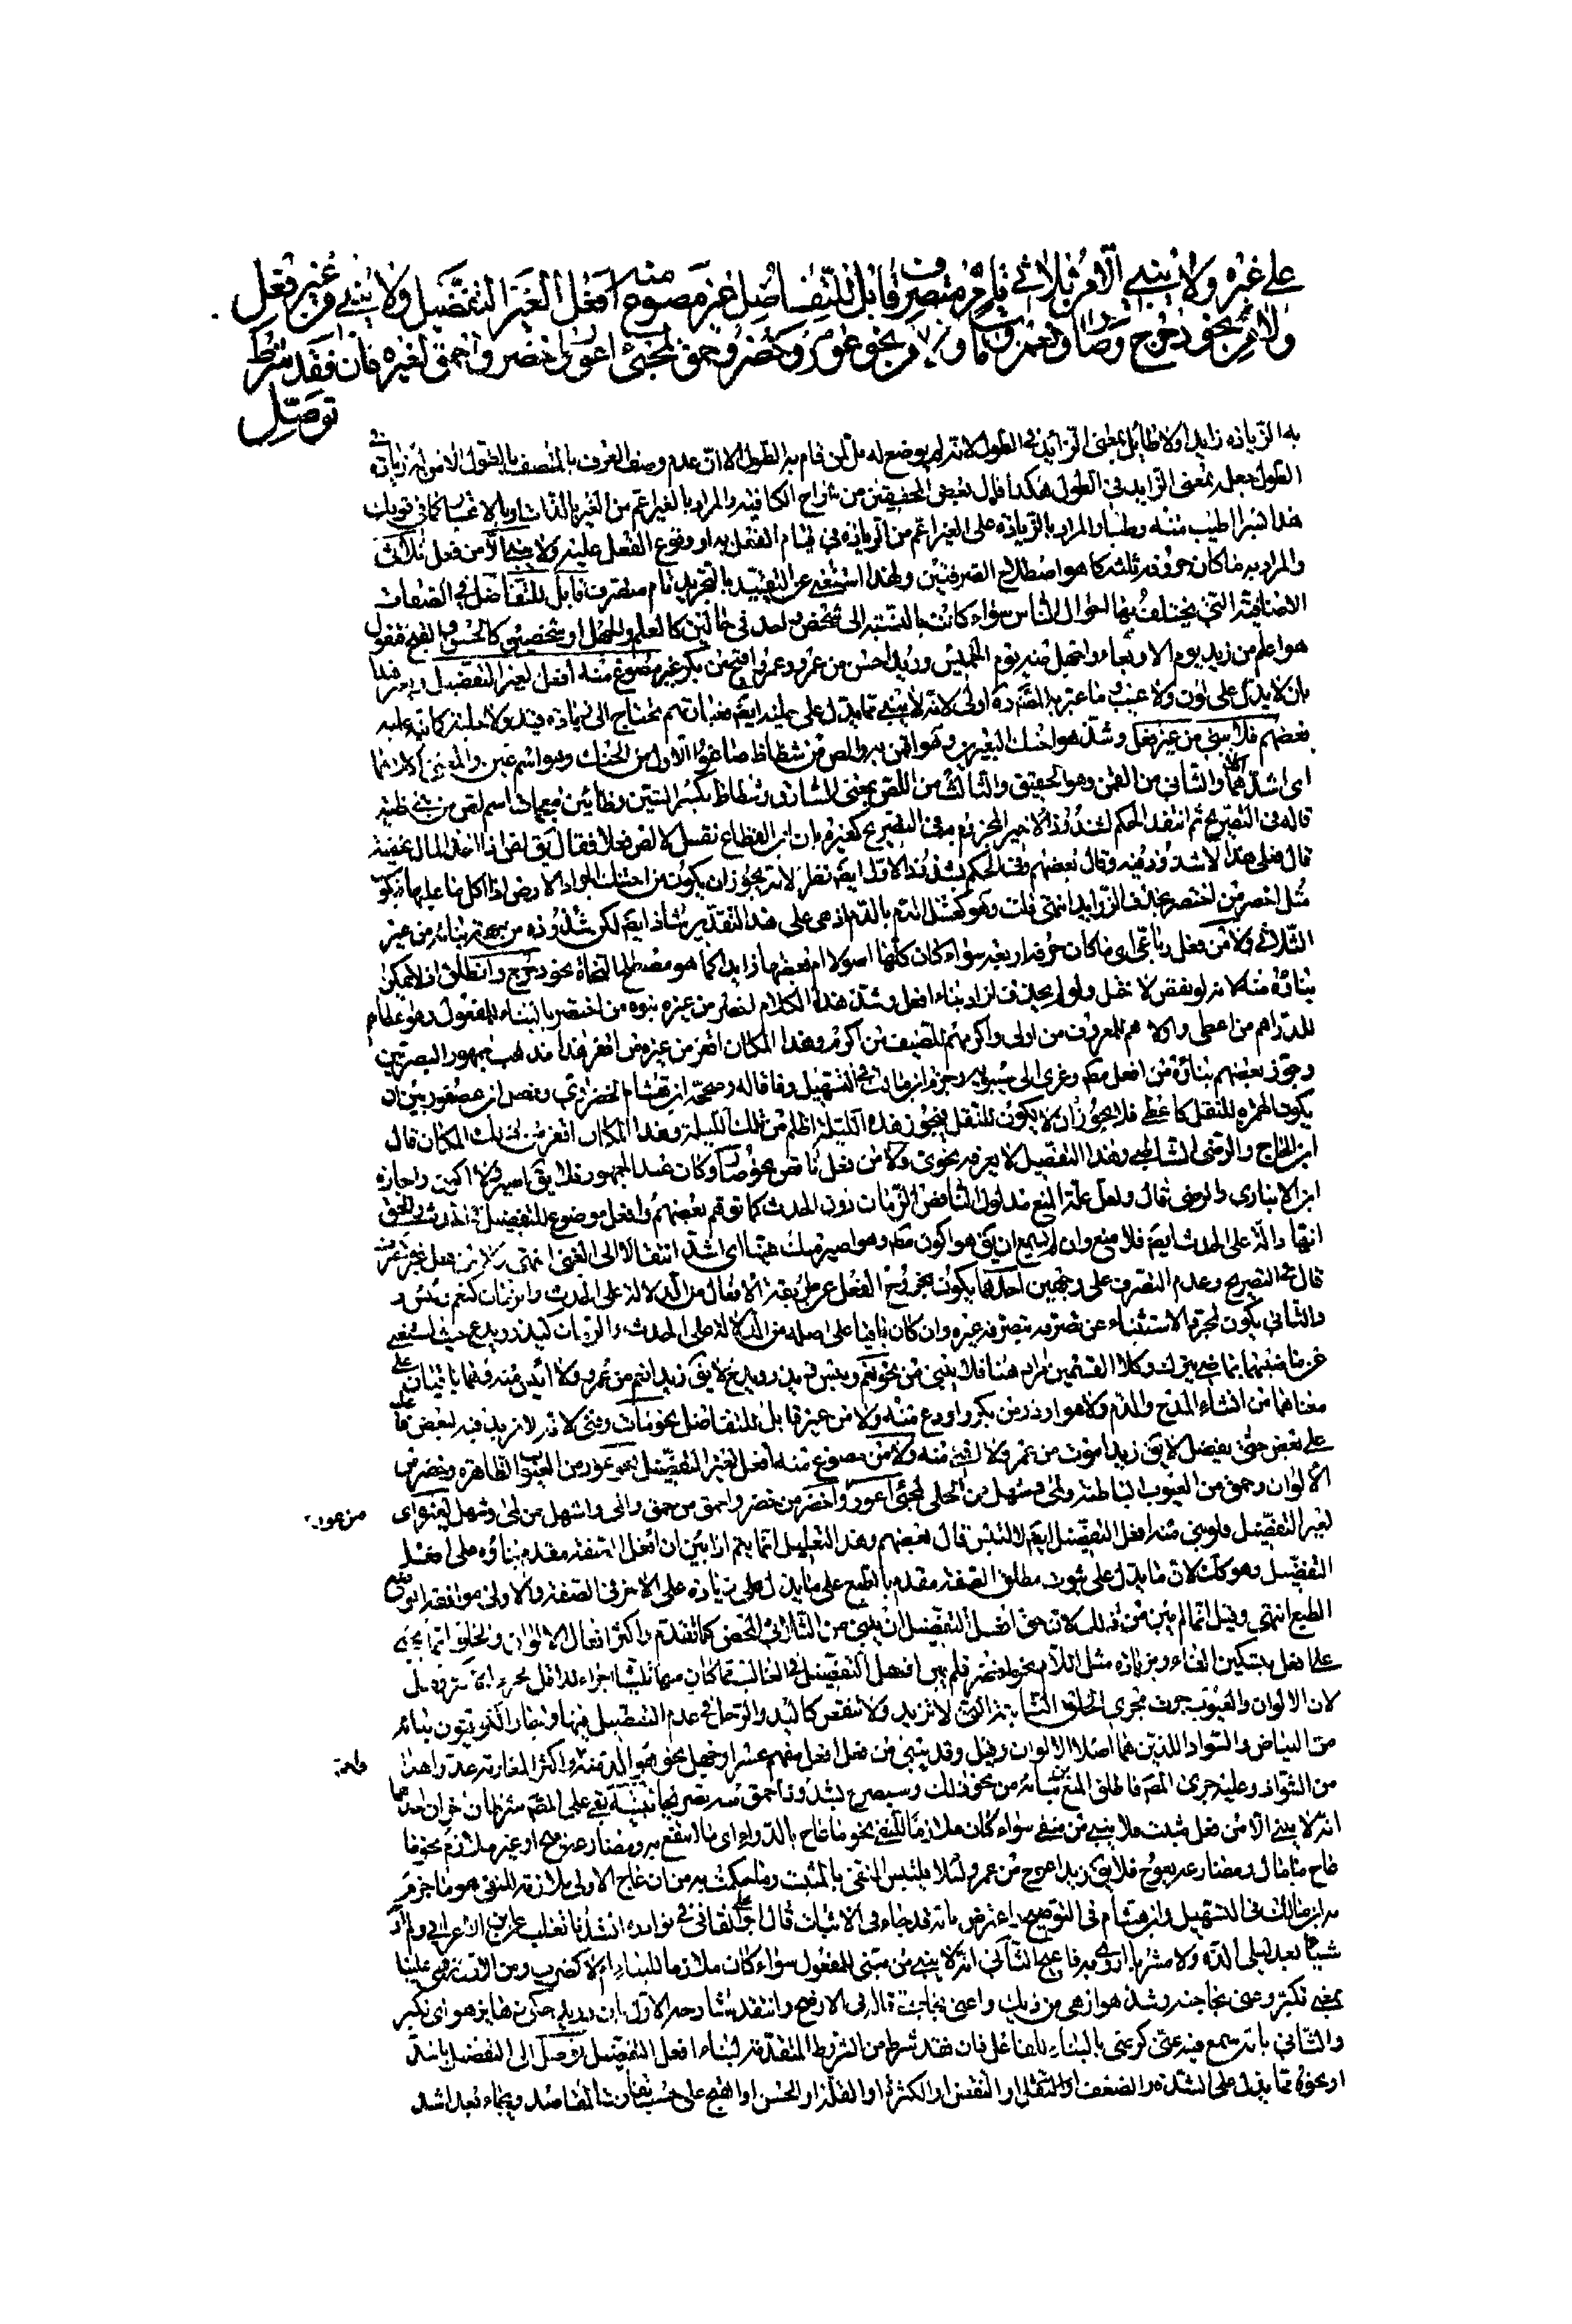 على غيره ولا يبنى الا من ثلاثي تام متصرف قابل للتفاضل غير مصوغ منه افعل لغير التفضيل ولا يبنى من غير فعل
ولا من نحو دحرج وصار ونعم ومات ولا من نحو عور وخضر وحمق لمجيء اعور واخضر واحمق لغيره فان فقد شرط
توصل
به الزياده زايد ولا طايل بمعنى الزايد في الطول لانه لم يوضع له بل لمن قام به الطول الا ان عدم وصف العرف بالمتصف بالطول الا من له زيادة في
الطول جعله بمعنى الزايد في الطول هكذا قال بعض المحققين من شراح الكافيه والمراد بالغير اعم من الغير بالذات او بالاعتبار كما في قولك
هذا بسرا اطيب منه رطبا والمراد بالزياده على الغير اعم من الزياده في قيام الفعل به او وقوع الفعل عليه ولا يبنى الا من فعل ثلاثي
والمراد به ما كان حروفه ثلثه كما هو اصطلاح الصرفيين ولهذا استغنى عن التقييد بالتجريد تام متصرف قابل للتفاضل في الصفات
الاضافية التي يختلف بها احوال الناس سواء كانت بالنسبة الى شخص واحد في حالتين كالعلم والجهل او شخصين كالحسن والقبح فتقول
هو اعلم من زيد يوم الاربعاء واجهل منه يوم الخميس وزيد احسن من عمرو وعمرو اقبح من بكر غير مصوغ منه افعل لغير التفضيل
بان لا يدل على لون ولا عيب وما عبر به المص ره اولى لانه
بعضهم فلا يبنى من غير فعل وشذ هو احنك البعيرين وهو اقمن به والص من شظاظ صاغوا الاول من الحنك وهو اسم عين والمعنى اكلهما
اى اشدهما اكلا والثاني من القمن وهو الحقيق والثالث من اللص بمعنى السارق وشظاظ بكسر الشين وظائين معجمات اسم لص من بني ضبه
قاله في التصريح ثم انتقد الحكم بشذوذ الاخير المجزوم به في التصريح كغيره بان ابن القطاع نقل للص فعلا فقال يق لص اذا اخذ المال بخفية
قال فعلى هذا لا شذوذ فيه وقال بعضهم وفي الحكم بشذوذ الاول ايضا نظر لانه يجوز ان يكون من احتنك الجراد الارض اذا اكل ما عليها فيكون
مثل اخصر من اختصر بحذف الزوايد انتهى قلت وهو
الثلاثي ولا من فعل رباعي اى ما كان حروفه اربعه سواء كان كلها اصولا ام بعضها زايدا كما هو مصطلح النحاة نحو دحرج وانطلق اذ لا يمكن
بناؤه منه لانه لو نقص لاختل ولو لم يحذف لزاد بناء افعل وشذ هذا الكلام اخصر من غيره بنوه من اختصر بالبناء للمفعول وهو اعطاهم
للدراهم من اعطى واولاهم للمعروف من اولى واكرمهم للضيف من اكرم وهذا المكان اقفر من غيره من اقفر هذا مذهب جمهور البصريين
وجوز بعضهم بناؤه من افعل مطلقا وعزى الى سيبويه وجزم ابن مالك في التسهيل وفاقا له وصححه ابن هشام الخضراوي وفصل ابن عصفور بين ان
يكون الهمزه للنقل كاعطى فلا يجوز ان لا يكون للنقل فيجوز هذه الليلة اظلم من تلك الليلة وهذا المكان اقفر من ذلك المكان قال
ابن الحاج والرضي الشاطبي وهذا التفصيل لا يعرفه نحوي ولا من فعل ناقص نحو صار وكان عند الجمهور فلا يق اصير ولا اكون واجازه
ابن الانباري والرضي قال ولعل علة المنع مدلول الناقص الزمان دون الحدث كما توهم بعضهم وافعل موضوع للتفضيل في الحدث والحق
انها دالة على الحدث ايضا فلا منع وان لم يسمع ان يق هو اكون مطلقا وهو اصير منك غنيا اى اشد انتقالا الى الغنى انتهى ولا من فعل غير متصرف
قال في التصريح وعدم التصرف على وجهين احدهما يكون بخروج الفعل عن طريقة الافعال من الدلالة على الحدث والزمان كنعم وبئس
والثاني يكون لمجرد الاستغناء عن تصرفه بتصرف غيره وان كان باقيا على اصله من الدلالة على الحدث والزمان كيذر ويدع حيث استغني
عن ماضيهما بماضي يترك وكلا القسمين مراد هنا فلا يبنى من نحو نعم وبئس ويذر ويدع لا يق زيد انعم من عمرو ولا ابئس منه فهما باقيان على
معناهما من انشاء المدح والذم ولا هو اوذر من بكر او اودع منه ولا من غير قابل للتفاضل نحو مات وفنى لانه لا مزيد فيه لبعض فاعليه
على بعض حتى يفضل لا يق زيد اموت من عمرو ولا افنى منه ولا من مصوغ منه افعل لغير التفضيل نحو عور من العيوب الظاهره وخضر من
الالوان وحمق من العيوب الباطنه ولمى وشهل من الحلى لمجئ اعور واخضر من خضر واحمق من حمق والمى واشهل من لمى وشهل لغيره اى
من عور
لغير التفضيل فلو بني منه افعل التفضيل ايضا لالتبس قال بعضهم وهذا التعليل انما يتم اذا بين ان افعل الصفه مقدم بناؤه على افعل
التفضيل وهو كذلك لان ما يدل على ثبوت مطلق الصفه مقدم بالطبع على ما يدل على زياده على الاخر في الصفه والاولى موافقه الوضع
الطبع انتهى وقيل انما لم يبن من ذلك لان حق افعل التفضيل ان يبنى من الثلاثي المحض كما تقدم واكثر افعال الالوان والخلق انما يجئ
على افعل بتسكين الفاء وبزياده مثل اللام نحو اخضر فلم يبن افعل التفضيل في الغالب
لان الالوان والعيوب جرت مجرى الخلق الثابته التي لا تزيد ولا تنقص كاليد والرجل في عدم التفضيل فيها واختار الكوفيون بنائه
من البياض والسواد اللذين هما اصل الالوان وقيل وقد يبنى من فعل افعل مفهم عسر او جهل
واحمق
من الشواذ وعليه جرى المص فاطلق المنع من بنائه من نحو ذلك وسيصرح بشذوذ احمق
انه لا يبنى الا من فعل مثبت فلا يبنى من منفي سواء كان ملازما للنفي نحو ما عاج بالدواء اى ما انتفع به ومضارعه يعيج او غير ملازم نحو ما
عاج ما مال ومضارعه يعوج فلا يق زيد اعوج من عمرو لئلا يلتبس المنفي بالمثبت
به ابن مالك في التسهيل وابن هشام في التوضيح واعترض بانه قد جاء في الاثبات قال ابو علي القالي في نوادره انشدنا ثعلب عن ابن الاعرابي ولم ار
شيئا بعد ليلى الذه ولا مشربا اروى به فاعيج الثاني انه لا يبنى من مبني للمفعول سواء كان ملازما للبناء ام لا كضرب
بمعنى تكبر وعنى بحاجته وشذ هو ازهى من ديك واعنى بحاجتك قاله في الاوضح وانتقد شارحه الاول بان ابن دريد حكى زها يزهو اى تكبر
والثاني بانه سمع فيه عنى كرضى بالبناء للفاعل فان فقد شرط من الشروط المتقدمه لبناء افعل التفضيل توصل الى التفضيل باشد
او نحوه مما يدل على الشده والضعف او النقص او الكثره او القله او الحسن او القبح على حسب تفاوت المقاصد ويجاء بعد اشد